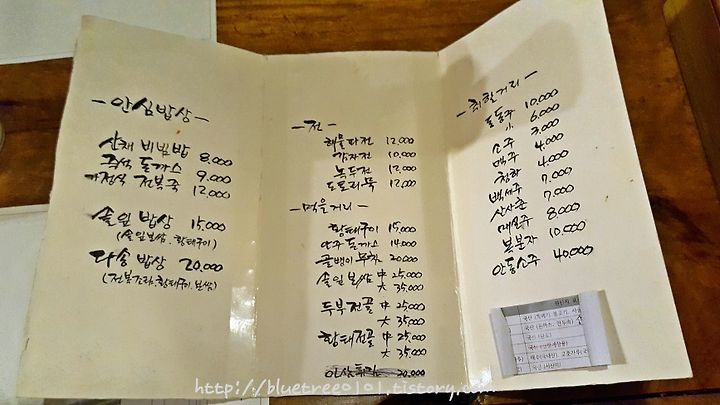 - 안심밥상 -
산채 비빔밥 8,000
즉석 돈까스 9,000
가정식 전복죽 12,000
솔잎 밥상 15,000
(솔잎보쌈, 황태구이)
다송 밥상 20,000
(전복요리, 황태구이, 보쌈)
- 전 -
해물파전 12,000
감자전 10,000
녹두전 12,000
도토리묵 12,000
- 먹을거리 -
황태구이 15,000
안주 돈까스 14,000
골뱅이 무침 20,000
솔잎 보쌈 中 25,000
大 35,000
두부전골 中 25,000
大 35,000
황태전골 中 25,000
大 35,000
30,000
- 취할거리 -
동동주 10,000
小 6,000
소주 3,000
맥주 4,000
청하 4,000
백세주 7,000
산사춘 7,000
매실주 8,000
복분자 10,000
안동소주 40,000
원산지
국산
국산
국산
http://bluetree0101.tistory.com